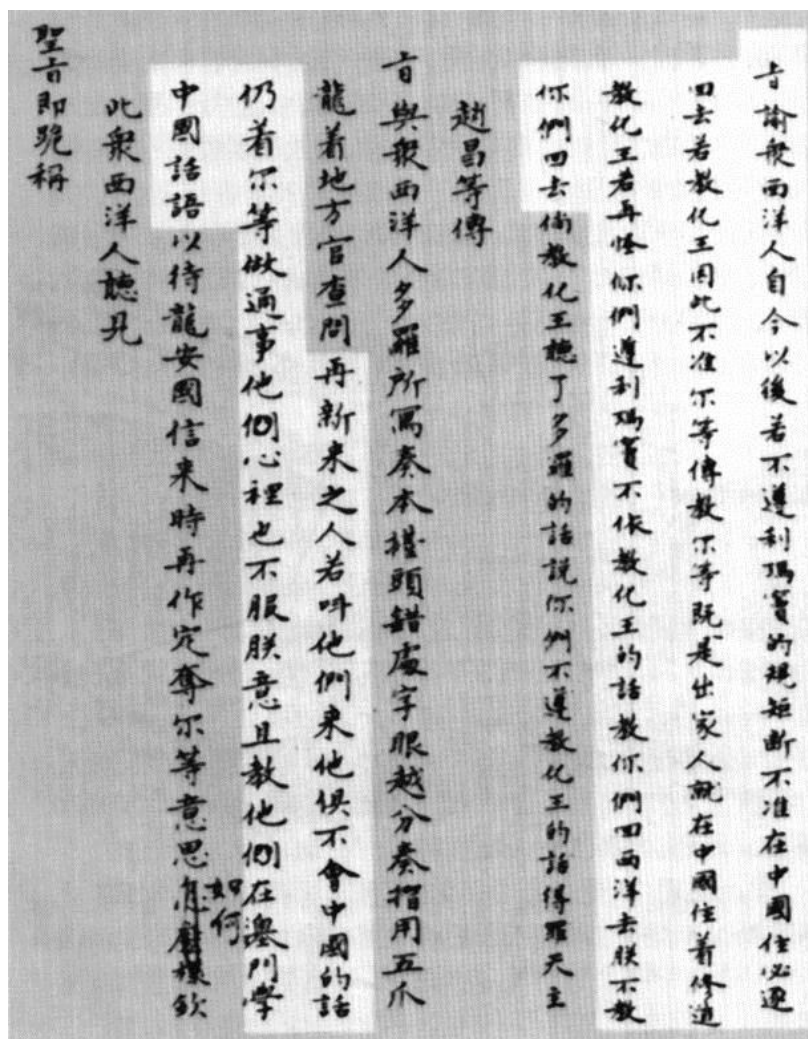 旨諭衆西洋人自今以後若不遵利瑪竇的規矩斷不准在中國住必逐
回去若教化王因此不准尔等傳教尔等既是出家人就在中國住着修道
教化王若再怪你們遵利瑪竇不依教化王的話教你們回西洋去朕不教
你們回去倘教化王聽了多羅的話說你們不遵教化王的話得罪天主
趙昌等傳
旨與衆西洋人多羅所寫奏本擡頭錯處字眼越分奏摺用五爪
龍着地方官查問再新來之人若叫他們來他俱不會中國的話
仍着尔等做通事他們心裡也不服朕意且教他們在澳門學
中國話語以待龍安國信來時再作定奪尔等意思如何欽
此衆西洋人聽見
聖旨即跪稱